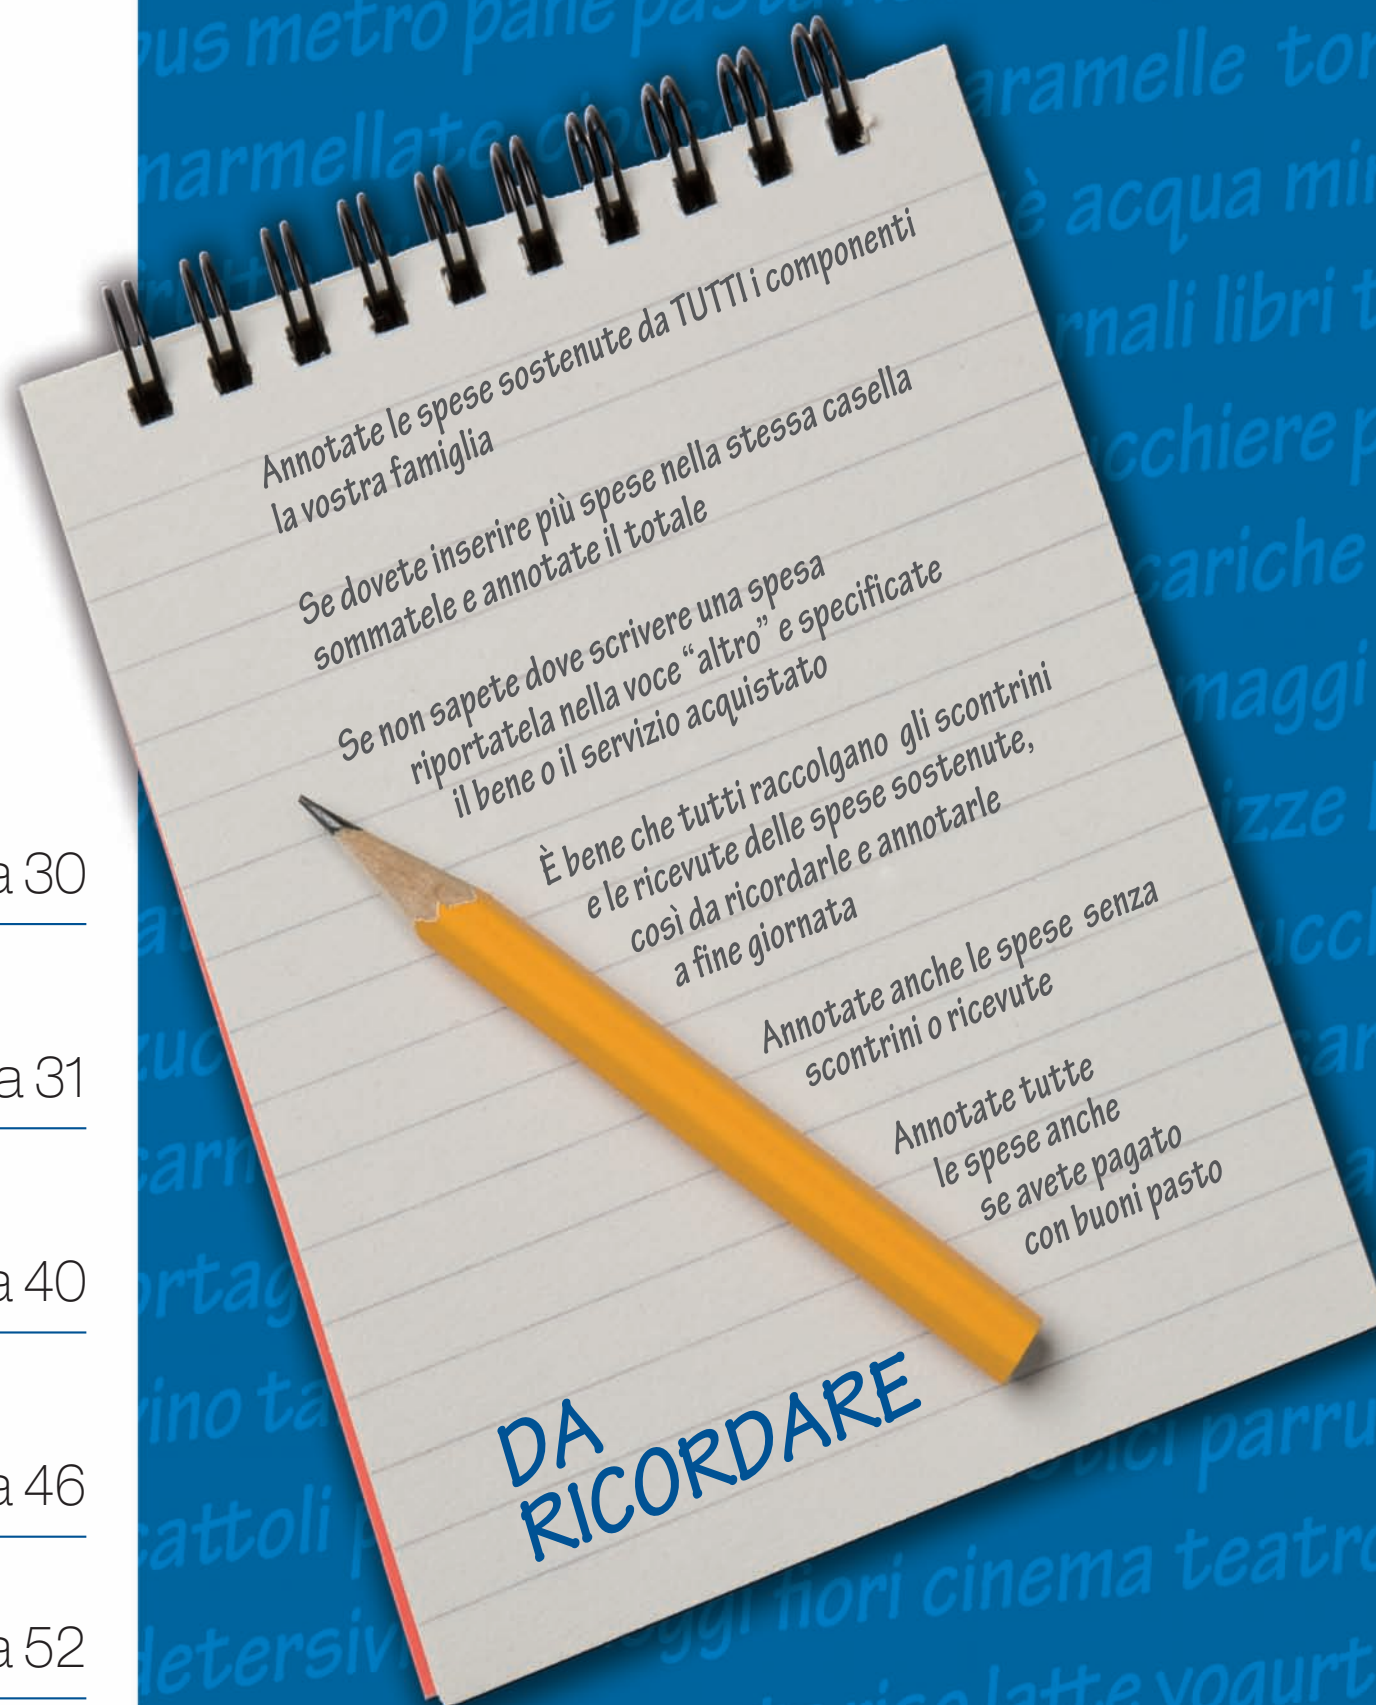 Annotate le spese sostenute da TUTTI i componenti
la vostra famiglia
Se dovete inserire più spese nella stessa casella
sommatele e annotate il totale
Se non sapete dove scrivere una spesa
riportatela nella voce “altro” e specificate
il bene o il servizio acquistato
È bene che tutti raccolgano gli scontrini
e le ricevute delle spese sostenute,
così da ricordarle e annotarle
a fine giornata
Annotate anche le spese senza
scontrini o ricevute
Annotate tutte
le spese anche
se avete pagato
con buoni pasto
DA
RICORDARE
a 30
a 31
a 40
a 46
a 52
metro pane
acqua
libri
fiori cinema teatro
latte yogurt